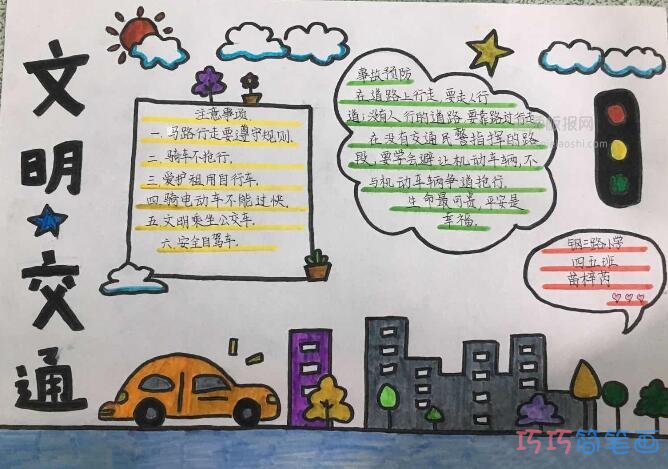 文明★交通
注意事项
一.马路行走要遵守规则.
二.骑车不抢行.
三.爱护租用自行车.
四.骑电动车不能过快.
五.文明乘坐公交车.
六.安全自驾车.
事故预防
在道路上行走,要走人行
道;没有人行的道路,要靠路边行走
在没有交通民警指挥的路
段,要学会避让机动车辆,不
与机动车辆争道抢行.
生命最可贵,平安是
幸福.
钢三路小学
四五班
苗梓芮
巧巧简笔画